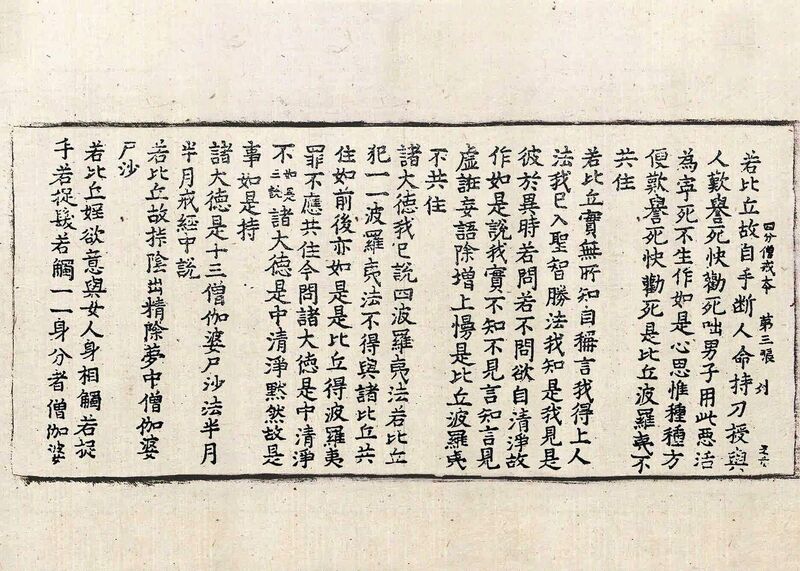 四分僧戒本 第三張
若比丘故自手断人命持刀授與
人歎譽死快勸死咄男子用此惡活
為寧死不生作如是心思惟種種方
便歎譽死快勸死是比丘波羅夷不
共住
若比丘實無所知自稱言我得上人
法我已入聖智勝法我知是我見是
彼於異時若問若不問欲自清淨故
作如是說我實不知不見言知言見
虛誑妄語除增上慢是比丘波羅夷
不共住
諸大德我已說四波羅夷法若比丘
犯一一波羅夷法不得與諸比丘共
住如前後亦如是是比丘得波羅夷
罪不應共住今問諸大德是中清淨
不如是三說諸大德是中清淨黙然故是
事如是持
諸大德是十三僧伽婆尸沙法半月
半月戒經中說
若比丘故挊陰出精除夢中僧伽婆
尸沙
若比丘婬欲意與女人身相觸若捉
手若捉髮若觸一一身分者僧伽婆